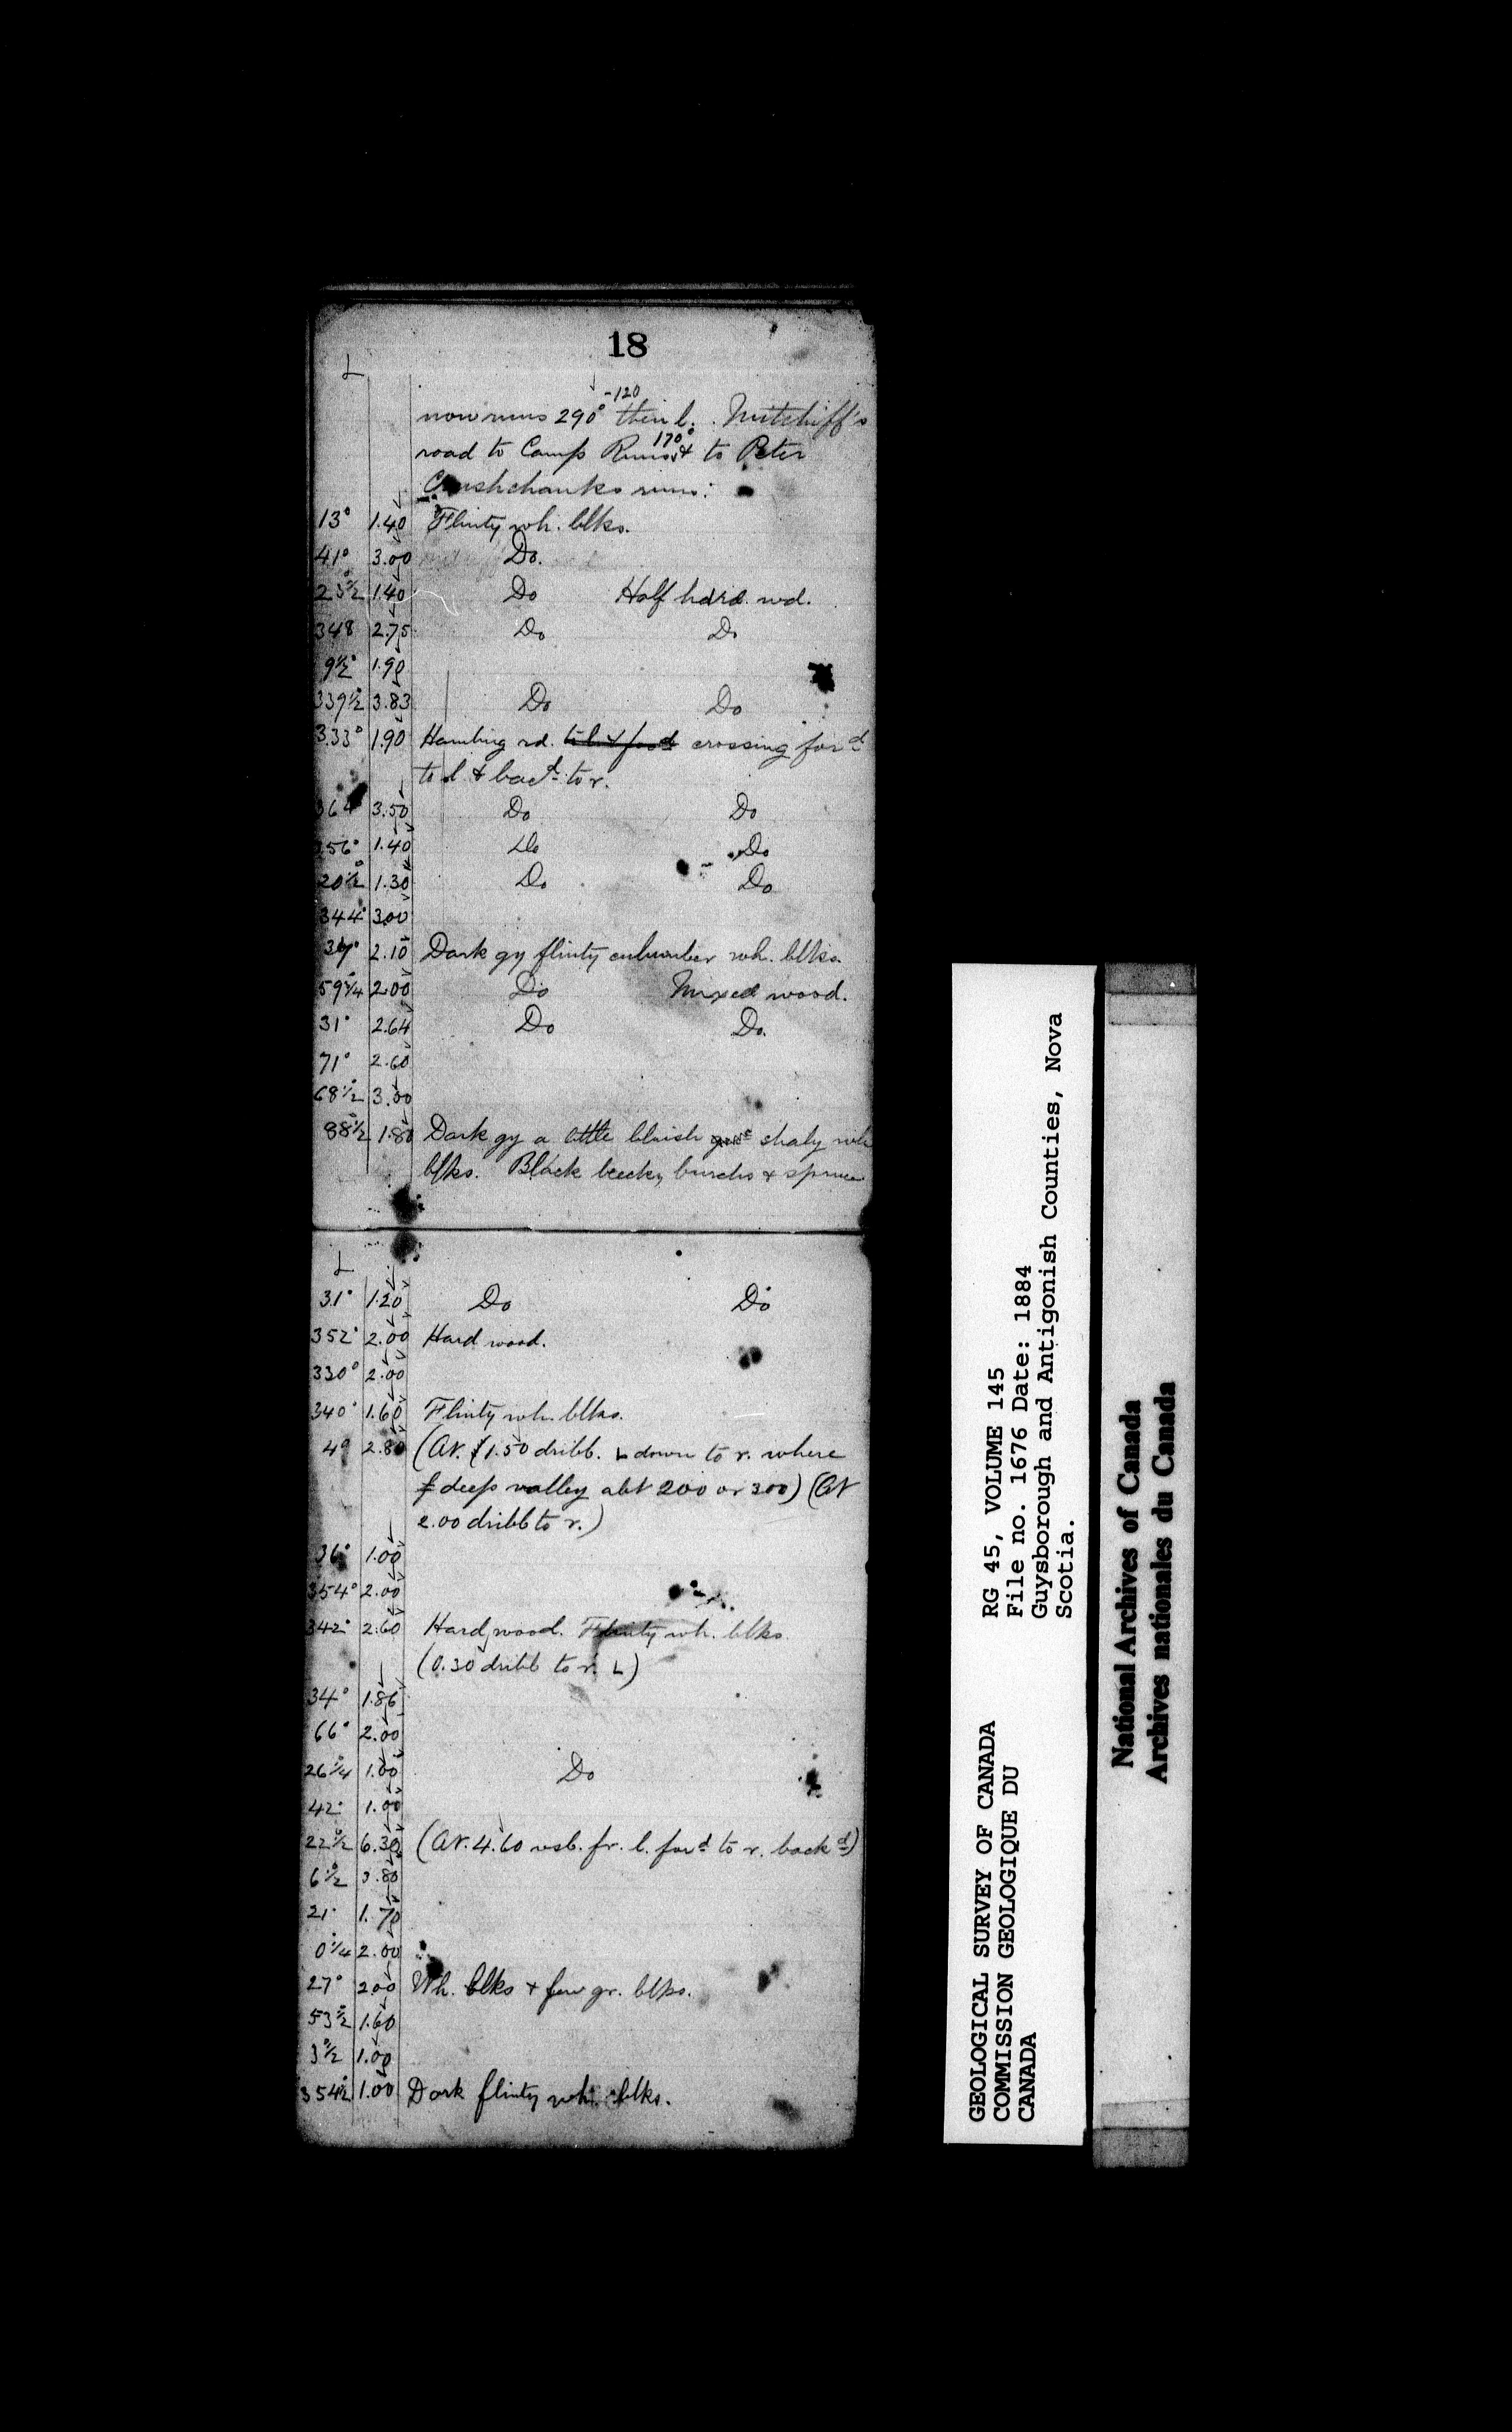 18
L
-120
now runs 290° then l.
170°
road to Camp Runs & to Peter
Crushchanks runs:
13° 1.40 Flinty wh. blks.
41° 3.00 Do.
23½° 1.40 Do Half hard. wd.
348 2.75 Do Do
9½° 1.90
339½° 3.83 Do Do
333° 1.90 Hauling rd. crossing for^d
to l. & bac^d to r.
3.50 Do Do
56° 1.40 Do Do
20½° 1.30 Do Do
344° 3.00
2.10 Dark gy flinty wh. blks.
59¾° 2.00 Do Mixed wood.
31° 2.64 Do Do.
71° 2.60
68½° 3.00
88½° 1.80 Dark gy a little bluish shaly wh
blks. Black beech, burchs & spruce
L
31° 1.20 Do Do
352° 2.00 Hard wood.
330° 2.00
340° 1.60 Flinty wh. blks.
4° 2.80 (At 1.50 dribb. L down to r. where
deep valley abt 200 or 300) (At
2.00 dribb to r.)
36° 1.00
354° 2.00
342° 2.60 Hard wood. Flinty wh. blks.
(0.30 dribb to r. L)
34° 1.86
66° 2.00
26¼° 1.00 Do
42° 1.00
22½° 6.30 (At. 4.60 fr. l. for^d to r. back^d)
6½° .80
21° 1.70
0¼ 2.00
27° 2.00 Wh. blks & few gr. blks.
53½° 1.60
3½° 1.00
354½° 1.00 Dark flinty wh. blks.
GEOLOGICAL SURVEY OF CANADA
COMMISSION GEOLOGIQUE DU
CANADA
RG 45, VOLUME 145
File no. 1676 Date: 1884
Guysborough and Antigonish Counties, Nova
Scotia.
National Archives of Canada
Archives nationales du Canada